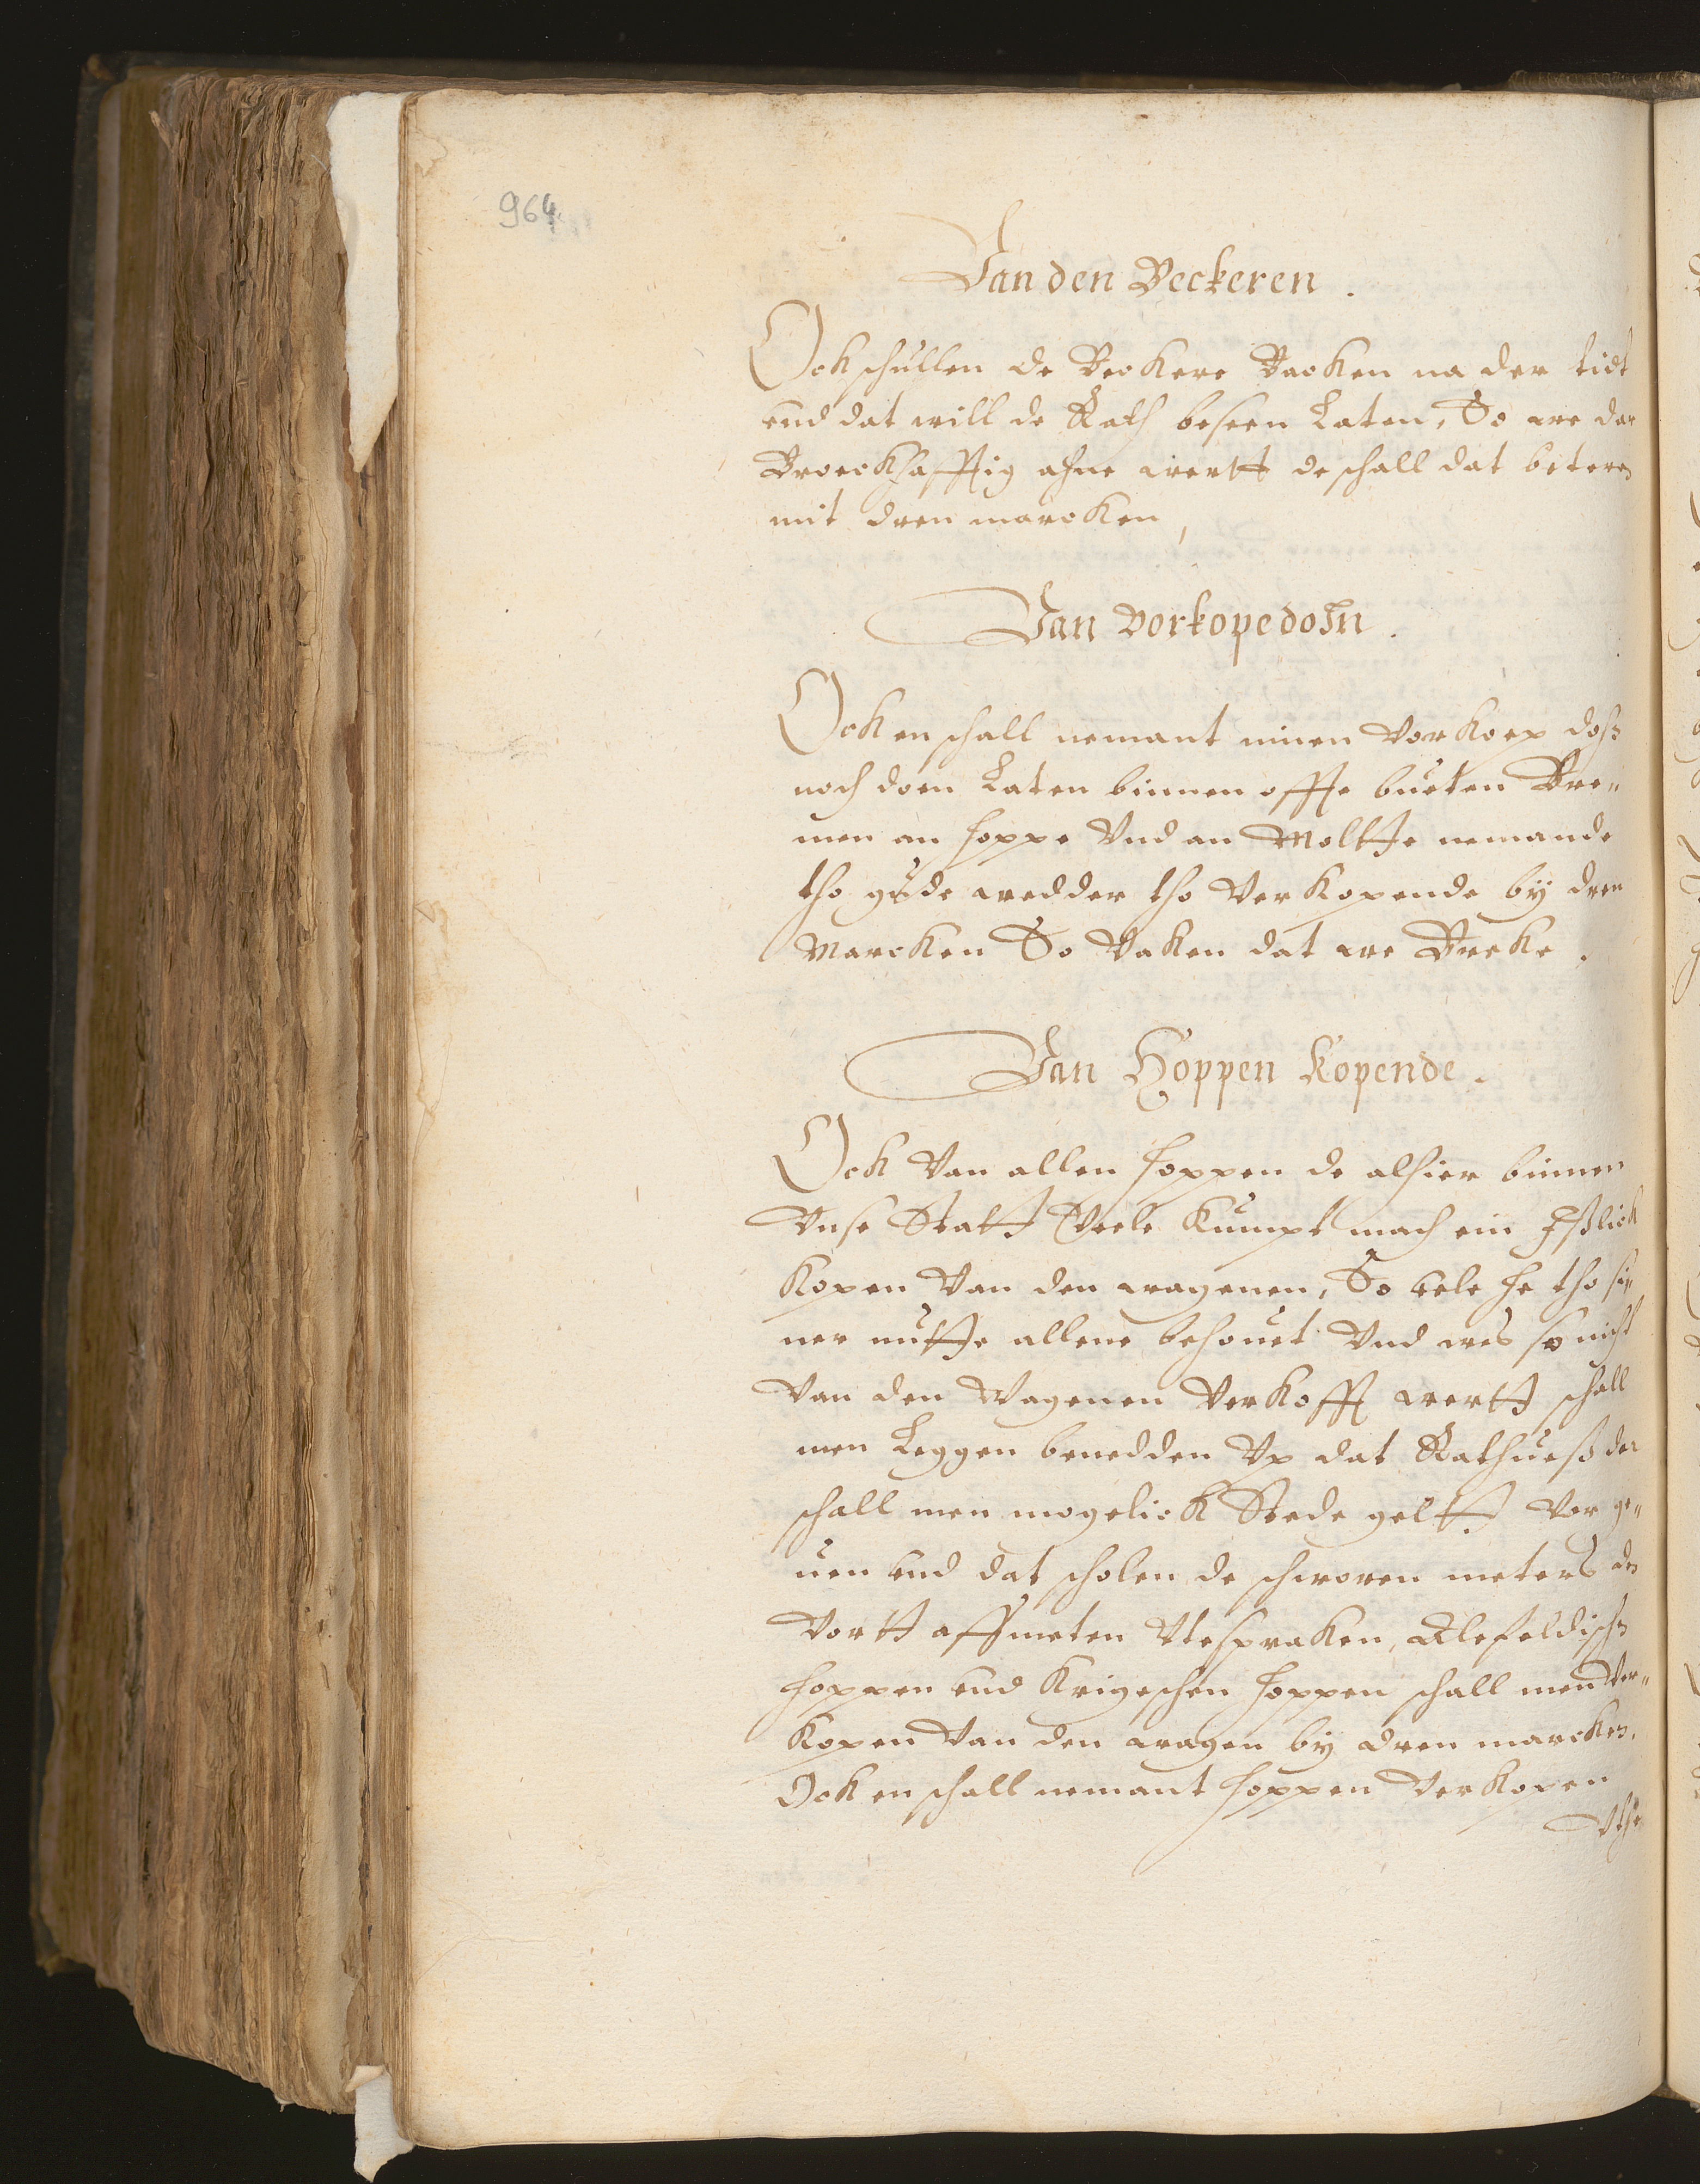 964.
Van den Beckeren.
Ock schullen de Beckere Backen na der tidt
und dat will de Rath beseen Laten, So we dar
Broeckhafftig ahne wertt de schall dat beteren
mit dren marcken,
Van vorkopedohn.
Ock en schall nemant einen Vorkoep dohn
noch doen Laten binnen offte bueten Bre„
men an hoppe Und an Moltte nemande
tho gude wedder tho Verkopende by dren
Marcken So Vaken dat we Breke.
Van Hoppen kopende.
Ock Van allen hoppen de alhier binnen
Unse Statt Veele kumpt mach ein Jßlick
kopen Van den wagenen, So vele he tho si„
ner nutte allene behouet Und wes so nicht
Van den Wagenen Verkofft wertt schall
men Leggen benedden Up dat Rathueß der
schall men mogelick Stede geltt Vor ge„
uen und dat scholen de schworen meters den
Vortt affmeten Utespraken, Alefeldischen
hoppen und krigeschen hoppen schall men Ver„
kopen Van den wagen by dren marcken.
Ock en schall nemant hoppen Verkopen
Uthe